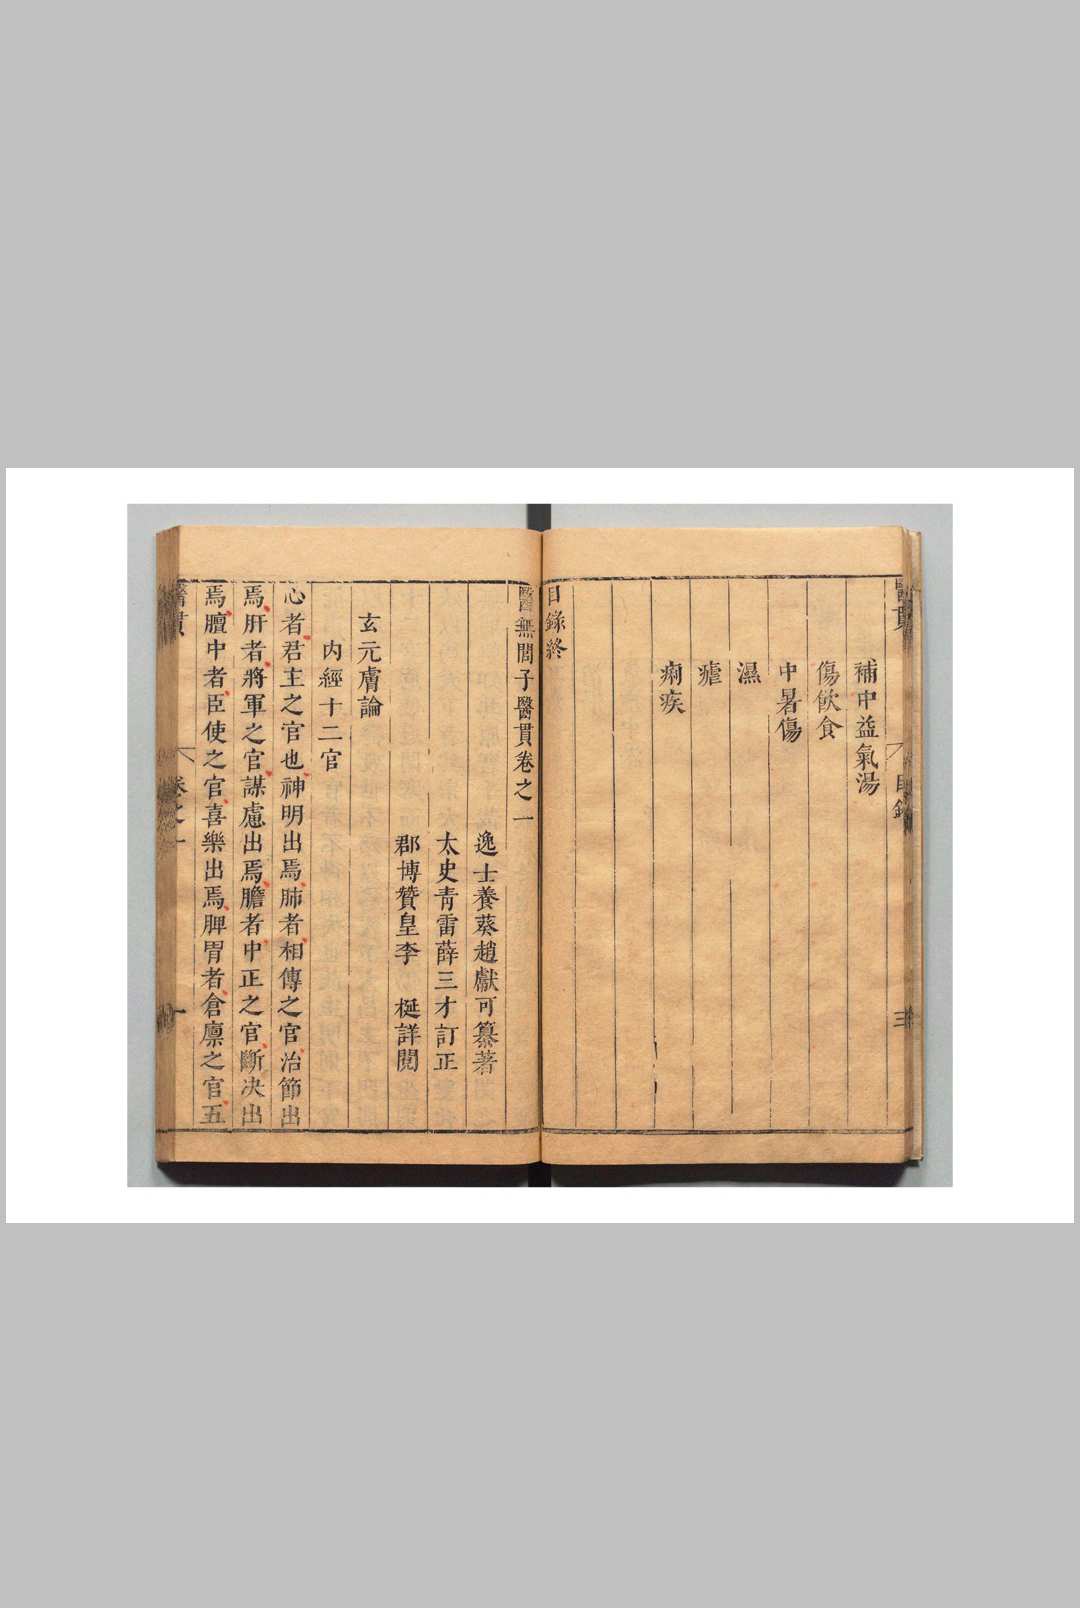 醫貫
目錄
三
補中益氣湯
傷飲食
中暑傷
濕
瘧
痢疾
目錄終
醫無閭子醫貫卷之一
逸士養葵趙獻可纂著
太史青雷薛三才訂正
郡博贊皇李　梴詳閱
玄元膚論
内經十二官
心者君主之官也神明出焉肺者相傳之官治節出
焉肝者將軍之官謀慮出焉膽者中正之官斷决出
焉膻中者臣使之官喜樂出焉脾胃者倉廪之官五
醫貫
卷之一
一